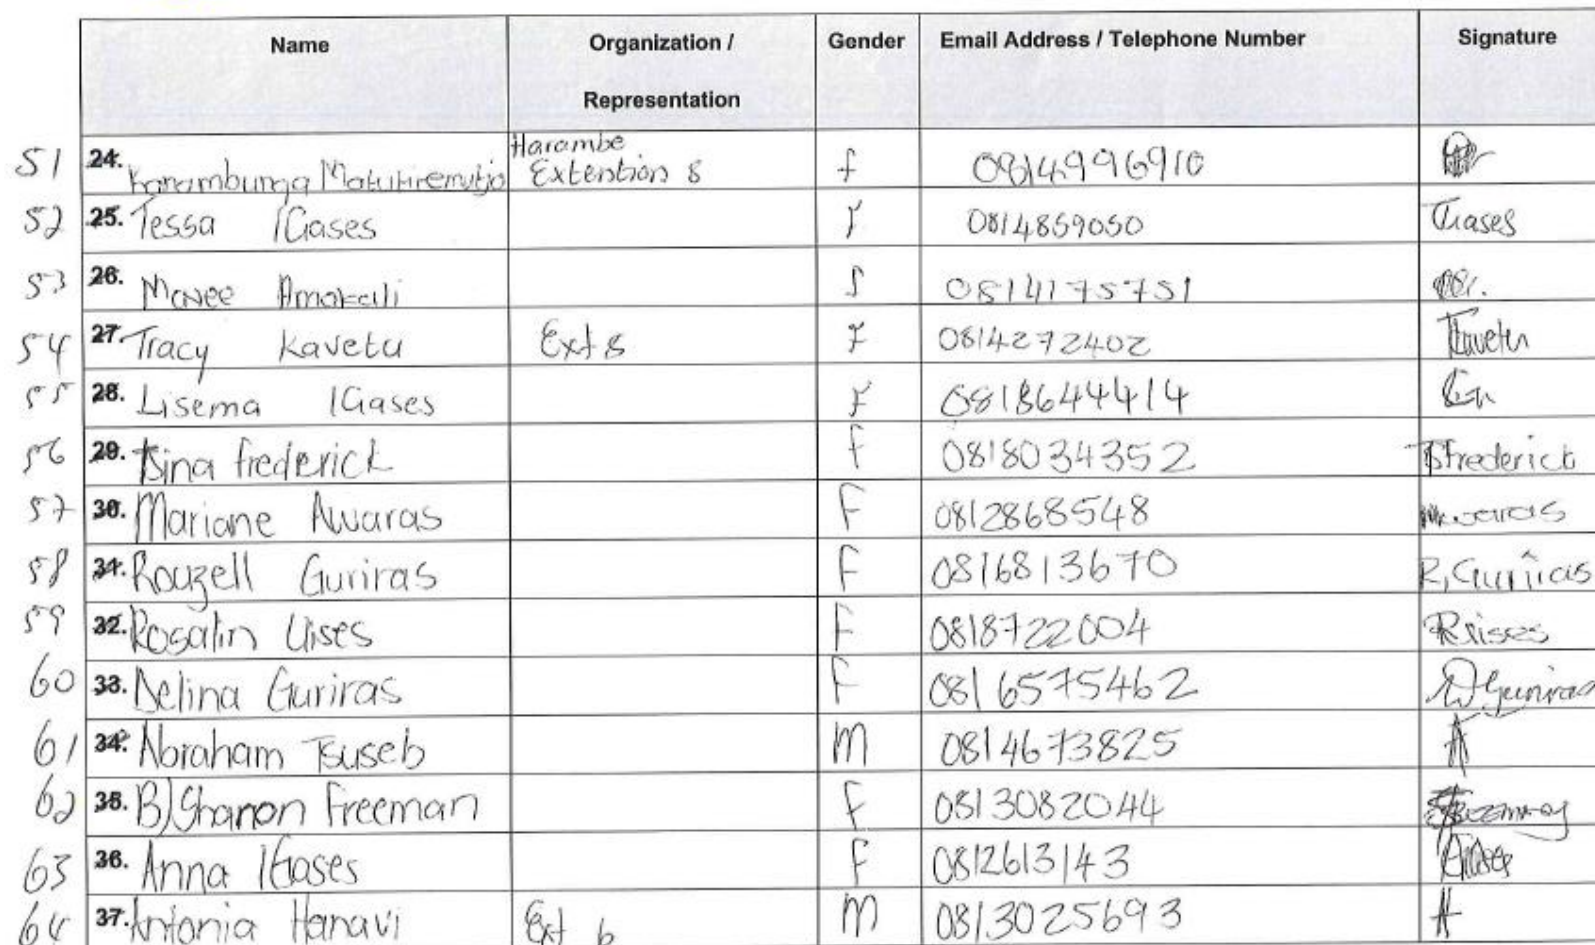 Name Organization / Gender Email Address / Telephone Number Signature
Representation
Harambe
51 24. Karambunga Matutiremutjo Extention 8 f 0814996910
52 25. Tessa IGases F 0814859050 TGases
53 26. f 0814175751
54 27. Tracy Kavetu Ext 8 F 0814272402 TKavetu
55 28. Lisema IGases F 0813644414
56 29. Tsina frederick f 0818034352 TSFrederick
57 30. Mariane Awaras F 0812868548
58 31. Rouzell Guriras F 0816813670 R,Guriras
59 32. Rosalin Uises F 0818722004 Ruises
60 33. Delina Guriras F 0816575462 D Guriras
61 34. Abraham Tsuseb M 0814673825 A
62 35. B)Sharon Freeman F 0813082044
63 36. Anna IGases F 0812613143
64 37. Antonia Hanavi Ext 6 M 0813025693 A